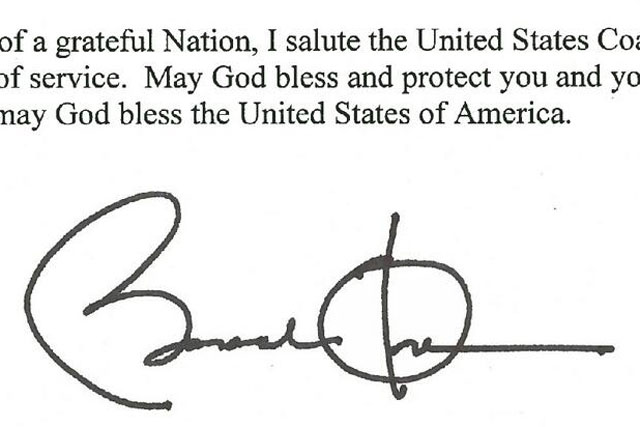 of a grateful Nation, I salute the United States Coa
of service. May God bless and protect you and yo
may God bless the United States of America.
Barack Obama